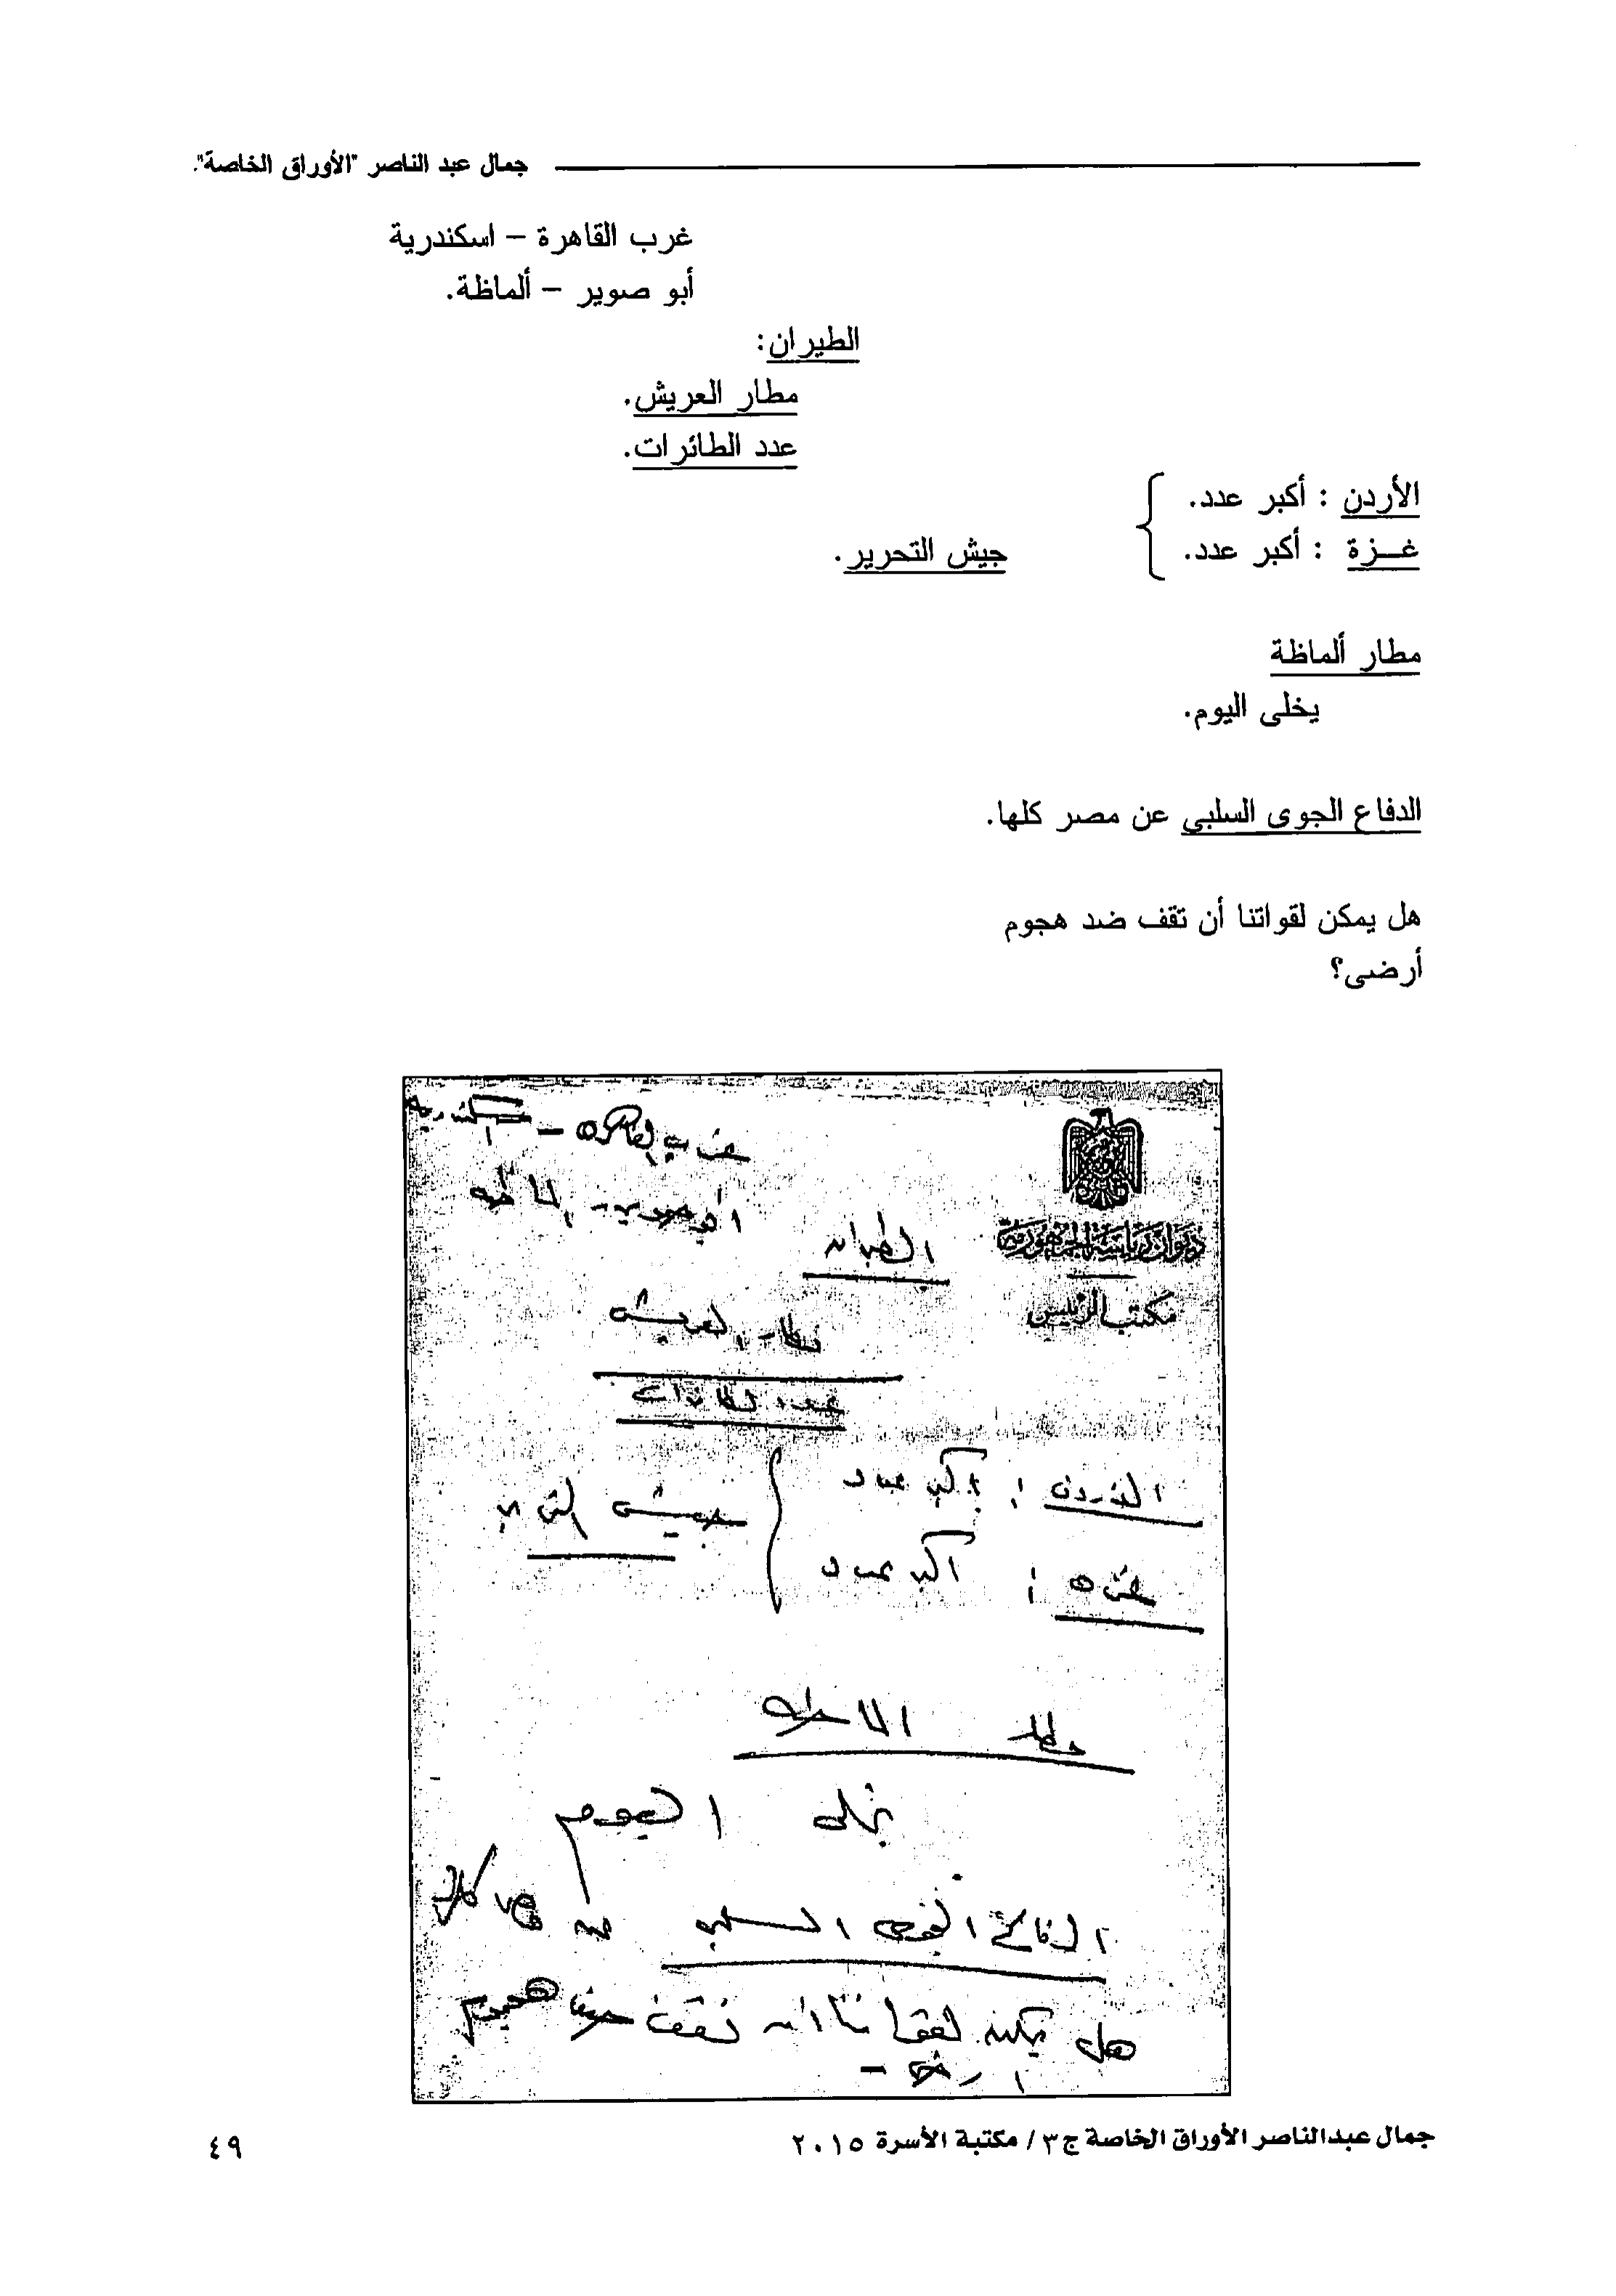 جمال عبد الناصر "الأوراق الخاصة".
غرب القاهرة – اسكندرية
أبو صوير – ألماظة.
الطيران:
مطار العريش.
عدد الطائرات.
الأردن : أكبر عدد.
غـــزة : أكبر عدد.
جيش التحرير.
مطار ألماظة
يخلى اليوم.
الدفاع الجوى السلبي عن مصر كلها.
هل يمكن لقواتنا أن تقف ضد هجوم
أرضى؟
ديوان رئاسة الجمهورية
مكتب الرئيس
غرب القاهرة – اسكندرية
ابو صوير - الماظه
الطيران
مطار العريش
عدد الطائرات
الاردن : اكبر عدد
غزه : اكبر عدد
جيش التحرير
مطار الماظه
يخلى اليوم
الدفاع الجوى السلبى عن مصر كلها
هل يمكن لقواتنا ان تقف ضد هجوم
ارضى -
جمال عبدالناصر الأوراق الخاصة ج٣ / مكتبة الأسرة ٢٠١٥
٤٩